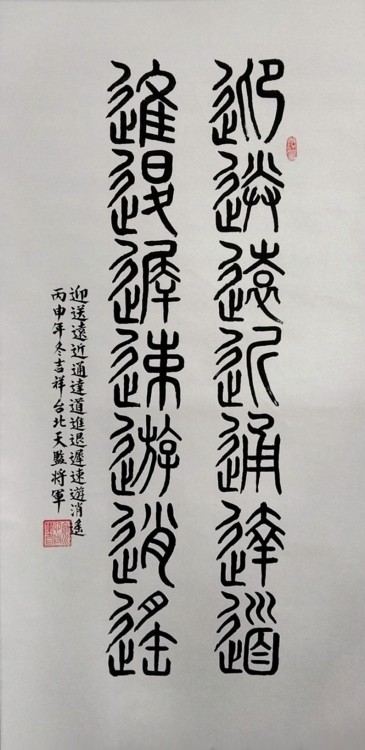 迎送遠近通達道
進退遲速遊逍遙
迎送遠近通達道進退遲速遊消遙
丙申年冬吉祥台北天監將軍